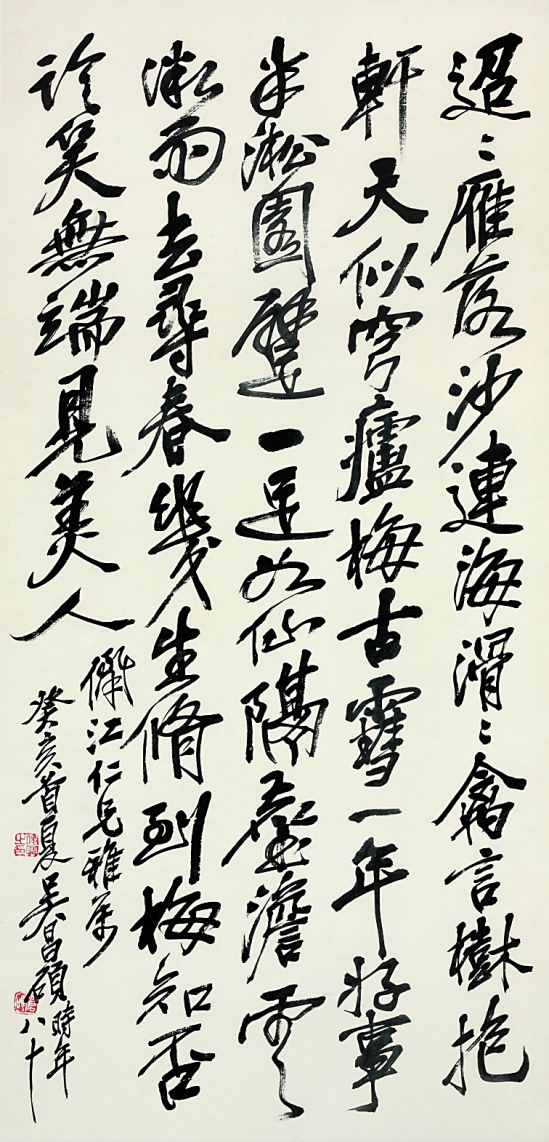 迢〻雁落沙連海滑〻禽言樹抱
軒天似穹廬梅古雪一年好事
半淞園躄一足如仙隔塵澹雲
微雨去尋春幾生脩到梅知否
笑無端見美人
江仁兄雅屬
癸亥首夏吳昌碩時年
八十